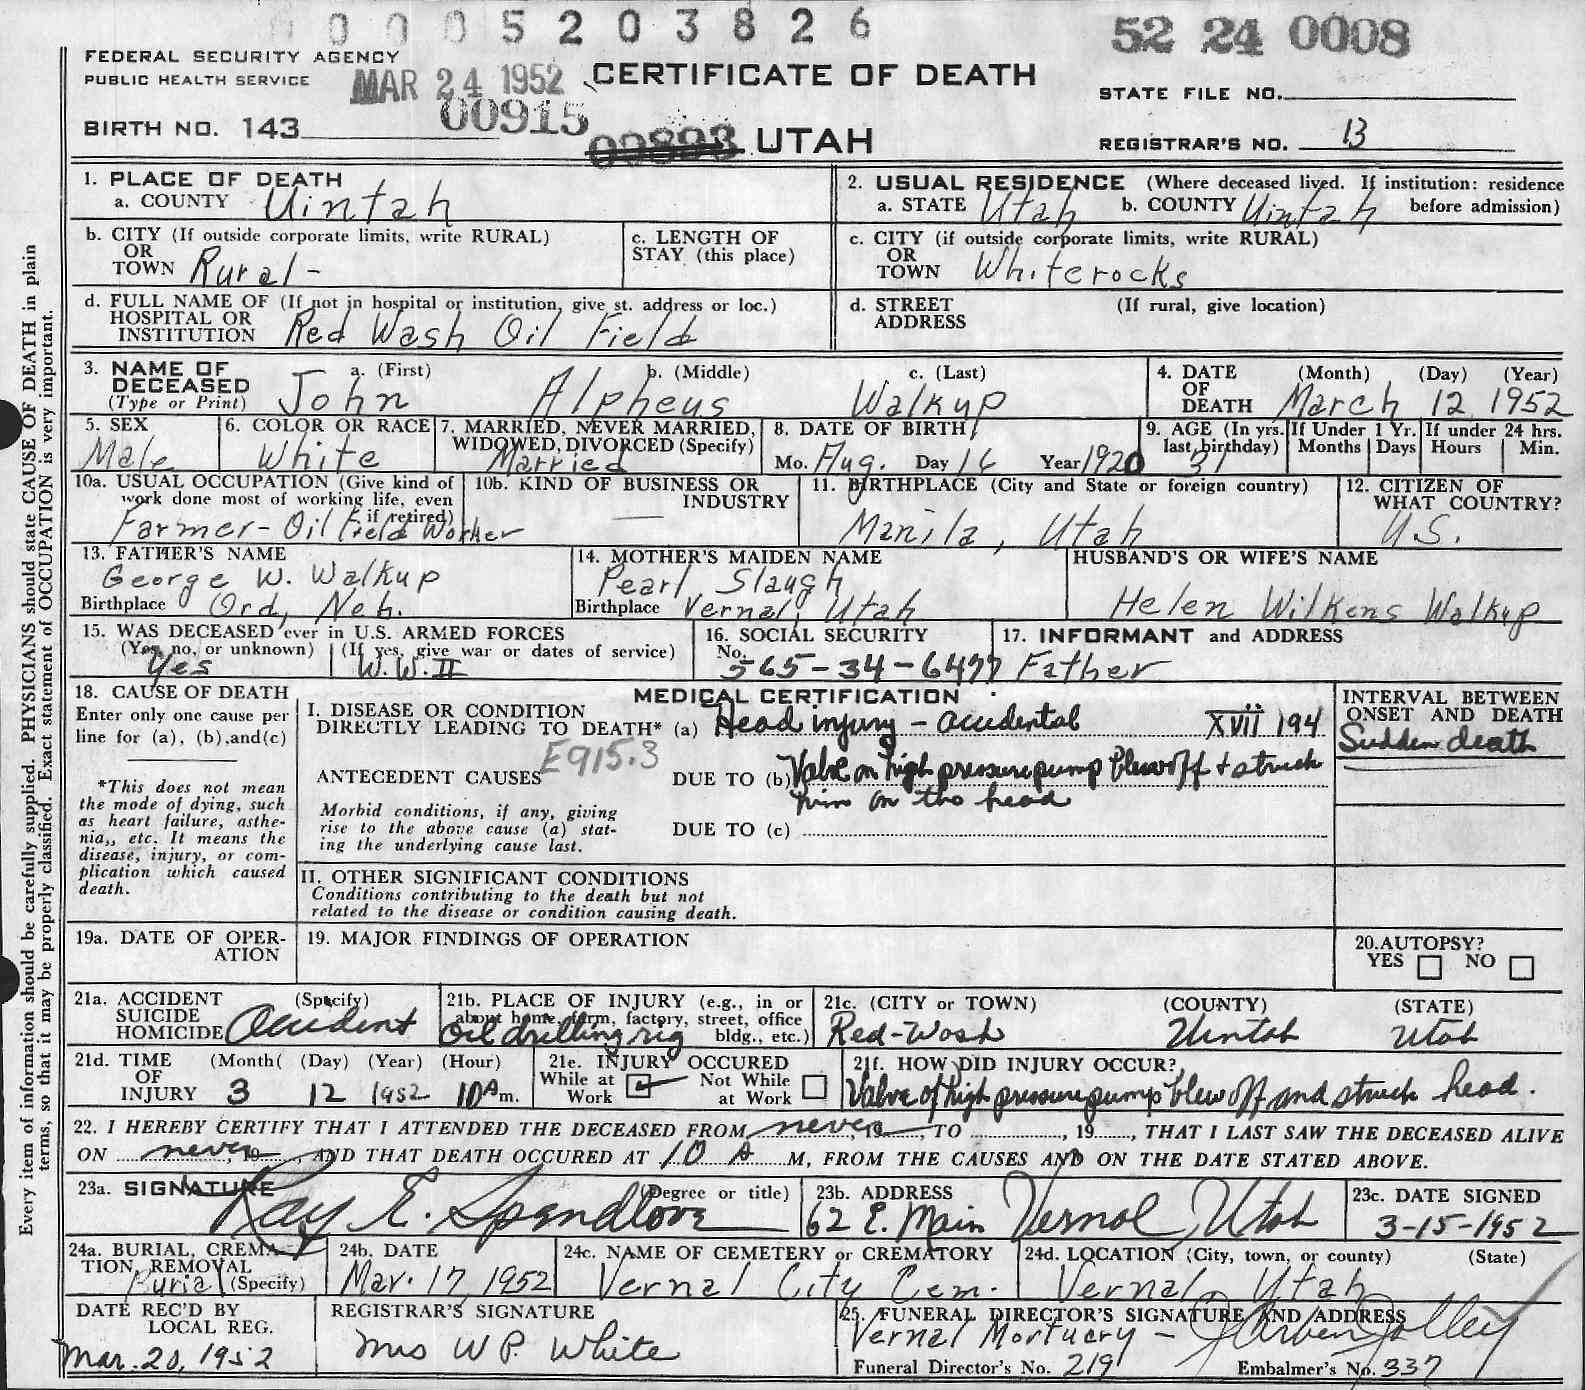 0 0 0 5 2 0 3 8 2 6
52 24 0008
FEDERAL SECURITY AGENCY
PUBLIC HEALTH SERVICE
MAR 24 1952
CERTIFICATE OF DEATH
STATE FILE NO.
00915
BIRTH NO. 143
00893 UTAH
REGISTRAR'S NO. 13
1. PLACE OF DEATH
a. COUNTY Uintah
2. USUAL RESIDENCE (Where deceased lived. If institution: residence
a. STATE Utah b. COUNTY Uintah before admission)
b. CITY (If outside corporate limits, write RURAL)
OR
TOWN Rural-
c. LENGTH OF
STAY (this place)
c. CITY (if outside corporate limits, write RURAL)
OR
TOWN Whiterocks
d. FULL NAME OF (If not in hospital or institution, give st. address or loc.)
HOSPITAL OR
INSTITUTION Red Wash Oil Field
d. STREET (If rural, give location)
ADDRESS
3. NAME OF DECEASED (Type or Print)
a. (First) b. (Middle) c. (Last)
John Alpheus Walkup
4. DATE OF DEATH (Month) (Day) (Year)
March 12 1952
5. SEX
Male
6. COLOR OR RACE
White
7. MARRIED, NEVER MARRIED,
WIDOWED, DIVORCED (Specify)
Married
8. DATE OF BIRTH
Mo. Aug. Day 16 Year 1920
9. AGE (In yrs. last birthday) 31
If Under 1 Yr.
Months Days
If under 24 hrs.
Hours Min.
10a. USUAL OCCUPATION (Give kind of
work done most of working life, even
if retired)
Farmer-Oil Field Worker
10b. KIND OF BUSINESS OR
INDUSTRY
—
11. BIRTHPLACE (City and State or foreign country)
Manila, Utah
12. CITIZEN OF
WHAT COUNTRY?
U.S.
13. FATHER'S NAME
George W. Walkup
Birthplace Ord, Neb.
14. MOTHER'S MAIDEN NAME
Pearl Slaugh
Birthplace Vernal, Utah
HUSBAND'S OR WIFE'S NAME
Helen Wilkens Walkup
15. WAS DECEASED ever in U.S. ARMED FORCES
(Yes, no, or unknown) (If yes, give war or dates of service)
Yes W.W.II
16. SOCIAL SECURITY
No. 565-34-6477
17. INFORMANT and ADDRESS
Father
18. CAUSE OF DEATH
Enter only one cause per
line for (a), (b), and(c)
*This does not mean
the mode of dying, such
as heart failure, asthe-
nia,, etc. It means the
disease, injury, or com-
plication which caused
death.
MEDICAL CERTIFICATION
I. DISEASE OR CONDITION
DIRECTLY LEADING TO DEATH* (a) Head injury - accidental XVII 194
E915.3
ANTECEDENT CAUSES
DUE TO (b) Valve on high pressure pump blew off + struck
him on the head
Morbid conditions, if any, giving
rise to the above cause (a) stat-
ing the underlying cause last.
DUE TO (c)
INTERVAL BETWEEN
ONSET AND DEATH
Sudden death
II. OTHER SIGNIFICANT CONDITIONS
Conditions contributing to the death but not
related to the disease or condition causing death.
19a. DATE OF OPER-
ATION
19. MAJOR FINDINGS OF OPERATION
20. AUTOPSY?
YES NO
21a. ACCIDENT (Specify)
SUICIDE
HOMICIDE Accident
21b. PLACE OF INJURY (e.g., in or
about home, farm, factory, street, office
bldg., etc.)
Oil drilling rig
21c. (CITY or TOWN) (COUNTY) (STATE)
Red-Wash Uintah Utah
21d. TIME OF INJURY (Month( (Day) (Year) (Hour)
3 12 1952 10 A m.
21e. INJURY OCCURED
While at Work
Not While at Work
21f. HOW DID INJURY OCCUR?
Valve of high pressure pump blew off and struck head.
22. I HEREBY CERTIFY THAT I ATTENDED THE DECEASED FROM never, 19 , TO , 19 , THAT I LAST SAW THE DECEASED ALIVE
ON never, 19 AND THAT DEATH OCCURED AT 10 A M, FROM THE CAUSES AND ON THE DATE STATED ABOVE.
23a. SIGNATURE (Degree or title)
Ray E. Spendlove
23b. ADDRESS
62 E. Main Vernal, Utah
23c. DATE SIGNED
3-15-1952
24a. BURIAL, CREMA-
TION, REMOVAL
Burial (Specify)
24b. DATE
Mar. 17, 1952
24c. NAME OF CEMETERY or CREMATORY
Vernal City Cem.
24d. LOCATION (City, town, or county) (State)
Vernal, Utah
DATE REC'D BY
LOCAL REG.
Mar. 20, 1952
REGISTRAR'S SIGNATURE
Mrs W P White
25. FUNERAL DIRECTOR'S SIGNATURE AND ADDRESS
Vernal Mortuary - Jolley
Funeral Director's No. 219
Embalmer's No. 337
Every item of information should be carefully supplied. PHYSICIANS should state CAUSE OF DEATH in plain
terms, so that it may be properly classified. Exact statement of OCCUPATION is very important.